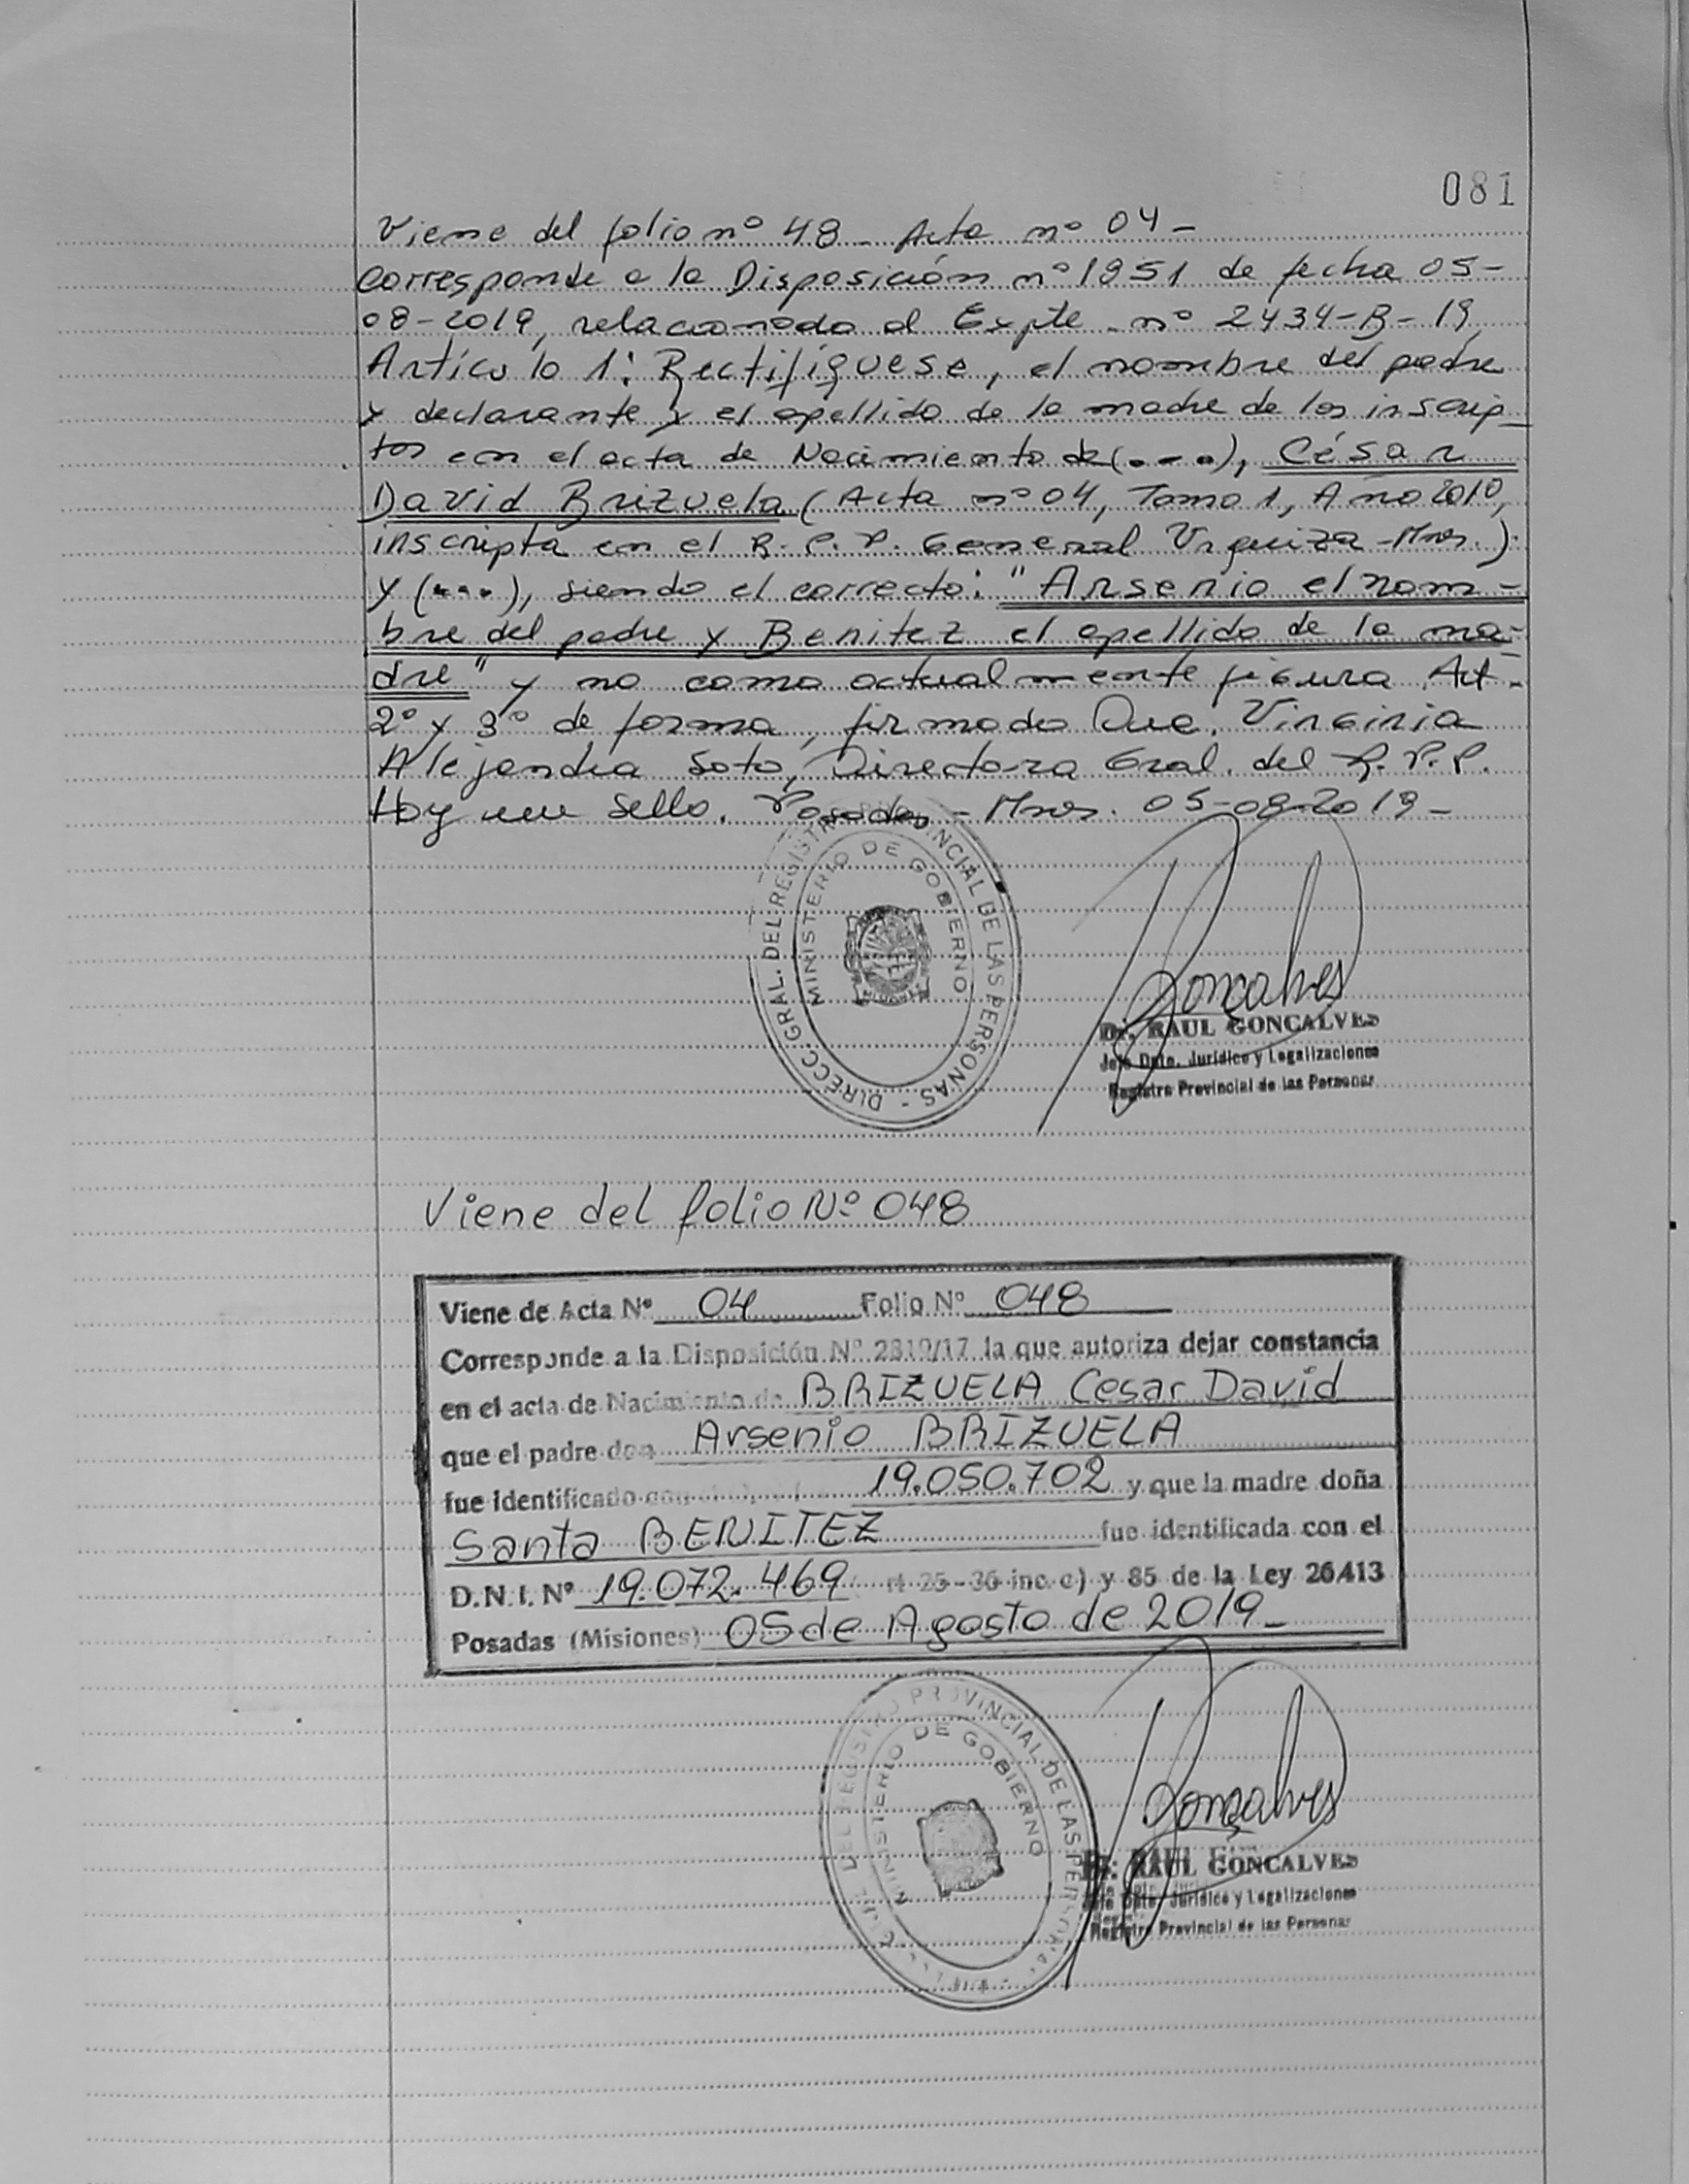 081
Viene del folio nº 48 - Acta nº 04 -
Corresponde a la Disposición nº 1951 de fecha 05-
08-2019, relacionado al Expte. nº 2434-B-19,
Artículo 1: Rectifíquese, el nombre del padre
y declarante y el apellido de la madre de los inscrip_
tos en el acta de Nacimiento de (---), César
David Brizuela (Acta nº 04, Tomo 1, Año 2010,
inscripta en el R.P.P. General Urquiza - Mnes.)
y (---), siendo el correcto: "Arsenio el nom-
bre del padre y Benitez el apellido de la ma-
dre" y no como actualmente figura. Art.
2º y 3º de forma, firmado Virginia
Alejandra Soto, Directora Gral. del R.P.P.
Hay un sello. Posadas - Mnes. 05-08-2019-
DIRECC. GRAL. DEL REGISTRO PROVINCIAL DE LAS PERSONAS -
MINISTERIO DE GOBIERNO
MISIONES
Gonçalves
Dr. RAUL GONÇALVES
Jefe Dpto. Jurídico y Legalizaciones
Registro Provincial de las Personas
Viene del folio Nº 048
Viene de Acta Nº 04 Folio Nº 048
Corresponde a la Disposición Nº 2819/17 la que autoriza dejar constancia
en el acta de Nacimiento de BRIZUELA Cesar David
que el padre don Arsenio BRIZUELA
fue identificado con 19.050.702 y que la madre doña
Santa BENITEZ fue identificada con el
D.N.I. Nº 19.072.469 rt 25-36 inc c) y 85 de la Ley 26.413
Posadas (Misiones) 05 de Agosto de 2019_
DEL REGISTRO PROVINCIAL DE LAS PERSONAS
MINISTERIO DE GOBIERNO
Gonçalves
Dr. RAUL GONCALVES
Jefe Dpto. Jurídico y Legalizaciones
Registro Provincial de las Personas